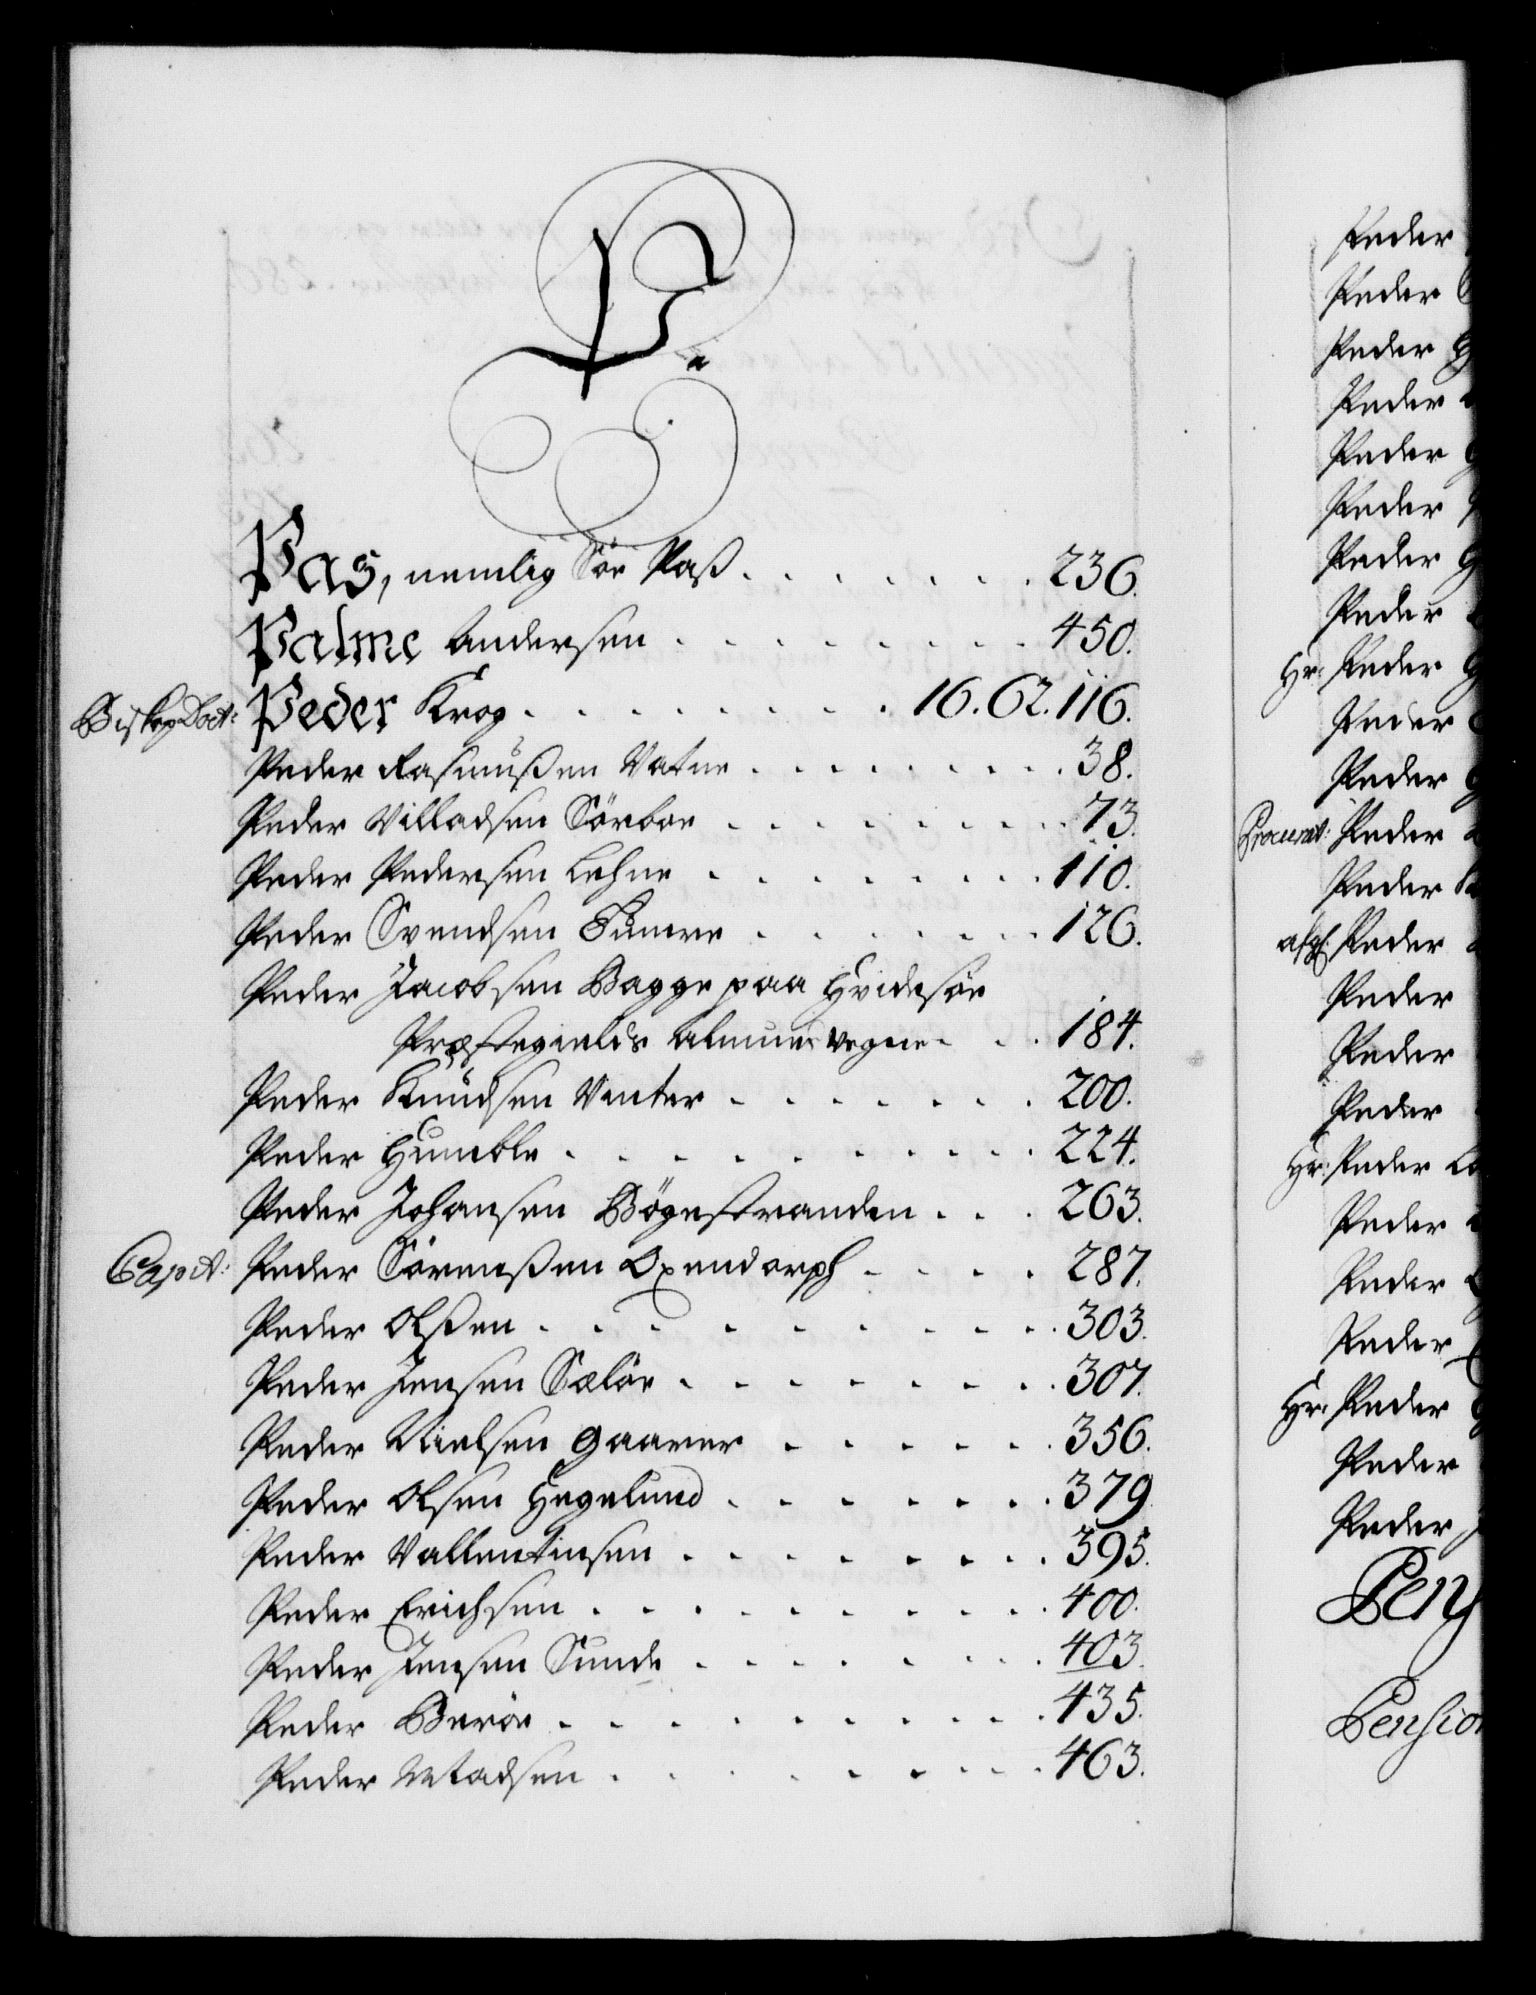 P.
Pas, nemlig Søe Pass . . . . . . . 236.
Palme Andersen . . . . . . . . 450.
Biskop Doct: Peder Krog . . . . . . . . 16. 62. 116.
Peder Rasmussen Vatne . . . . . . . . . 38.
Peder Villadsen Sörboe . . . . . . . . . 73.
Peder Pedersen Lehne . . . . . . . . 110.
Peder Svendsen . . . . . . . 126.
Peder Jacobsen Bagge paa Hvidesøe
Præstegields Almues vegne . . . 184.
Peder Knudsen Venter . . . . . . . 200.
Peder Humble . . . . . . . . . . 224.
Peder Johansen Bögestranden . . . 263.
Capit: Peder Sörensen Oxendorph . . . . 287.
Peder Olsen . . . . . . . . . . 303.
Peder Jensen Sælöe . . . . . . . . 307.
Peder Nielsen Gaarer . . . . . . 356.
Peder Olsen Hegelund . . . . . . . 379.
Peder Vallentinsen . . . . . . . . 395.
Peder Erichsen . . . . . . . . . . 400.
Peder Jensen Sunde . . . . . . . . 403.
Peder Beröe . . . . . . . . . . 435.
Peder Madsen . . . . . . . . . 463.
Peder
Peder
Peder
Peder
Peder
Peder
Peder
Peder
Hr: Peder
Peder
Peder
Procurat: Peder
Peder
afg: Peder
Peder
Peder
Peder
Hr: Peder
Peder
Peder
Peder
Hr: Peder
Peder
Peder